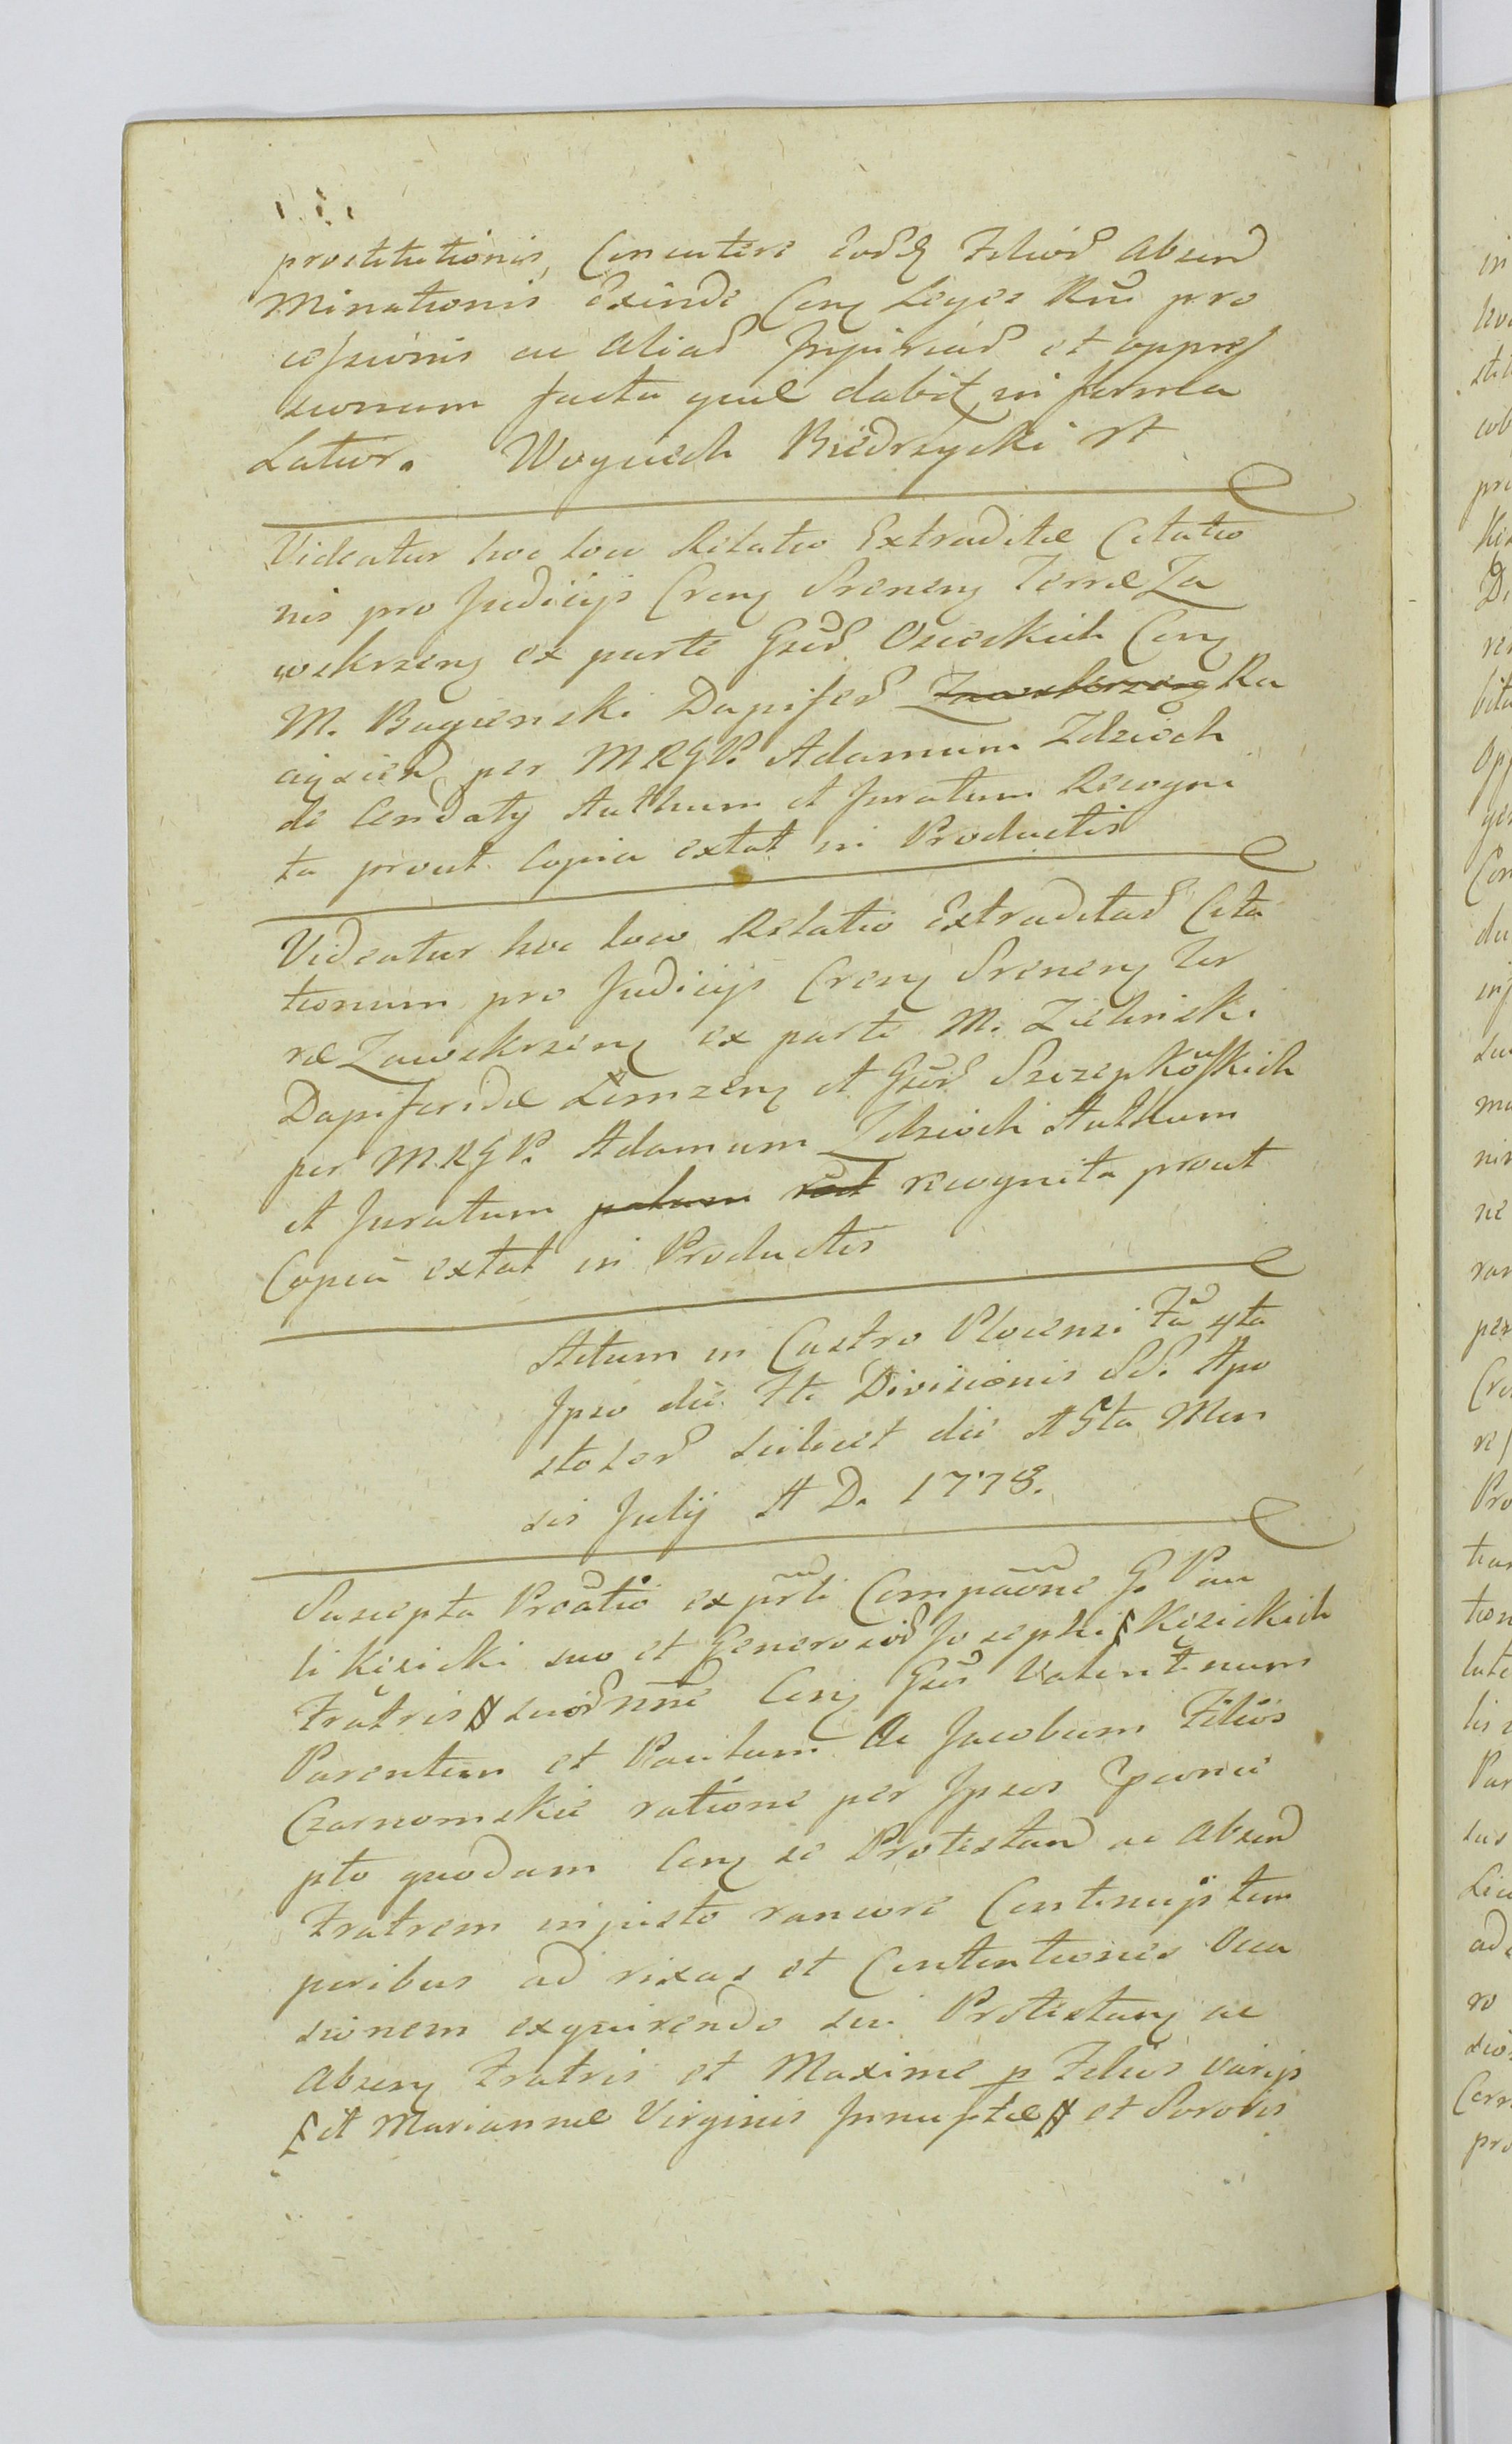 prostitutionis, Concutere eosdꝫ Filios Absend
Minationis exinde Conꝫ Leges Rni pro
cessionis ac aliar Injuriar et oppres
sionum facta quæ dabit in forma
Latior. Woyciech Biedrzycki st
Videatur hoc loco Relatio Extraditæ Citatio
nis pro Judicijs Crenꝫ Srenenꝫ Terræ Za
wskrzenꝫ ex parte Gser Osieckich Conꝫ
M. Bagienski Dapifer Zawskrzenꝫ Ra
ciąxien per MRGP. Adamum Zdzioch
de Cendaty Authum et Juratum Recogni
ta prout Copia extat in Productis
Videatur hoc loco Relatio Extraditar Cita
tionum pro Judicijs Crenꝫ Srenenꝫ Ter
ræ Zawskrzenꝫ ex parte M. Zielinski
Dapiferidæ Lomzenꝫ et Gser Szczepkoskich
per M.RGP. Adamum Zdzioch Authum
et Juratum recognita prout
Copia extat in Productis
Actum in Castro Plocensi Fa 4ta
Ipso die Fti Divisionis SS. Apo
stolor scilicet die 15ta Men
sis Julij A D. 1778.
Suscepta Prōatio ex prti Compaōne G. Pau
li Kisicki suo et Generosor Josephi ꞩ Kisickich
Fratris # suor nne Conꝫ Gser Valentinum
Parentem et Paulum Ac Jacobum Filios
Czarnomskie ratione per Ipsos
pto quodam Conꝫ se Protestand ac Absend
Fratrem injusto rancore Continuis tem
poribus ad rixas et Contentiones Occa
sionem exquirendo sui Protestanꝫ ac
Absenꝫ Fratris et Maxime p Filios varijs
ꞩ et Mariannæ Virginis Innuptæ # et Sororis